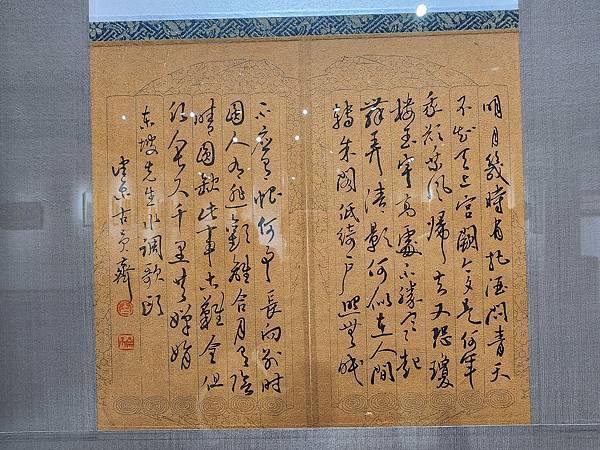 明月幾時有把酒問青天
不知天上宮闕今夕是何年
我欲乘風歸去又恐瓊
樓玉宇高處不勝寒起
舞弄清影何似在人間
轉朱閣低綺戶照無眠
不應有恨何事長向別時
圓人有悲歡離合月有陰
晴圓缺此事古難全但
願人長久千里共嬋娟
东坡先生水调歌頭
古齋